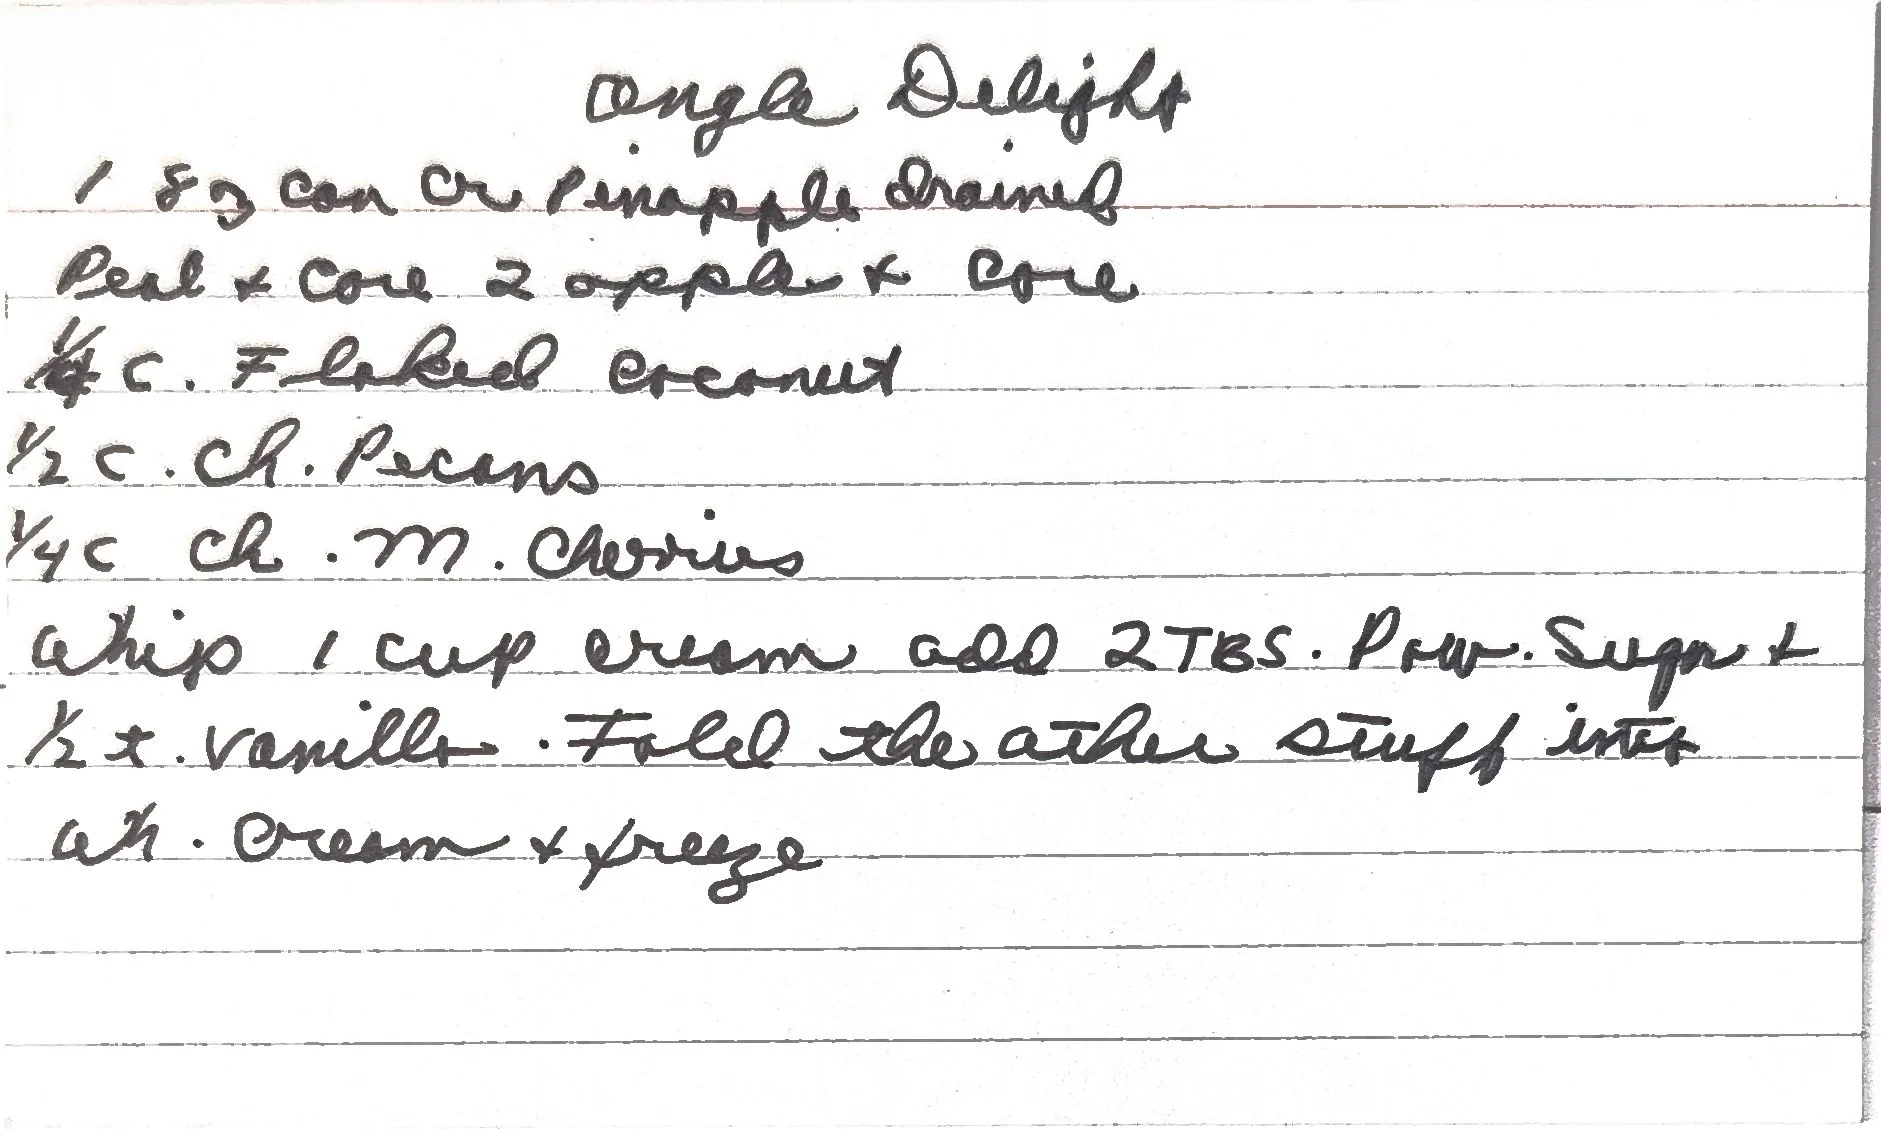 Angle Delight
1 8 oz can Cr Pinapple drained
Peal & Core 2 apple & Core
1/4 c. Flaked Coconut
1/2 c. Ch. Pecans
1/4 c Ch. M. Cherries
Whip 1 cup cream add 2 TBS. Pow. Sugar &
1/2 t. vanilla. Fold the other stuff into
wh. cream & freeze